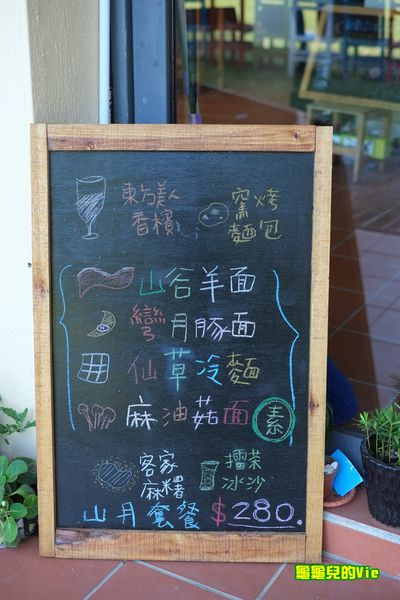 東方美人 窯烤
香檳 麵包
山谷羊面
彎月豚面
仙草冷麵
麻油菇面 素
客家 擂茶
麻糬 冰沙
山月套餐 $280.
龜龜兒的Vie